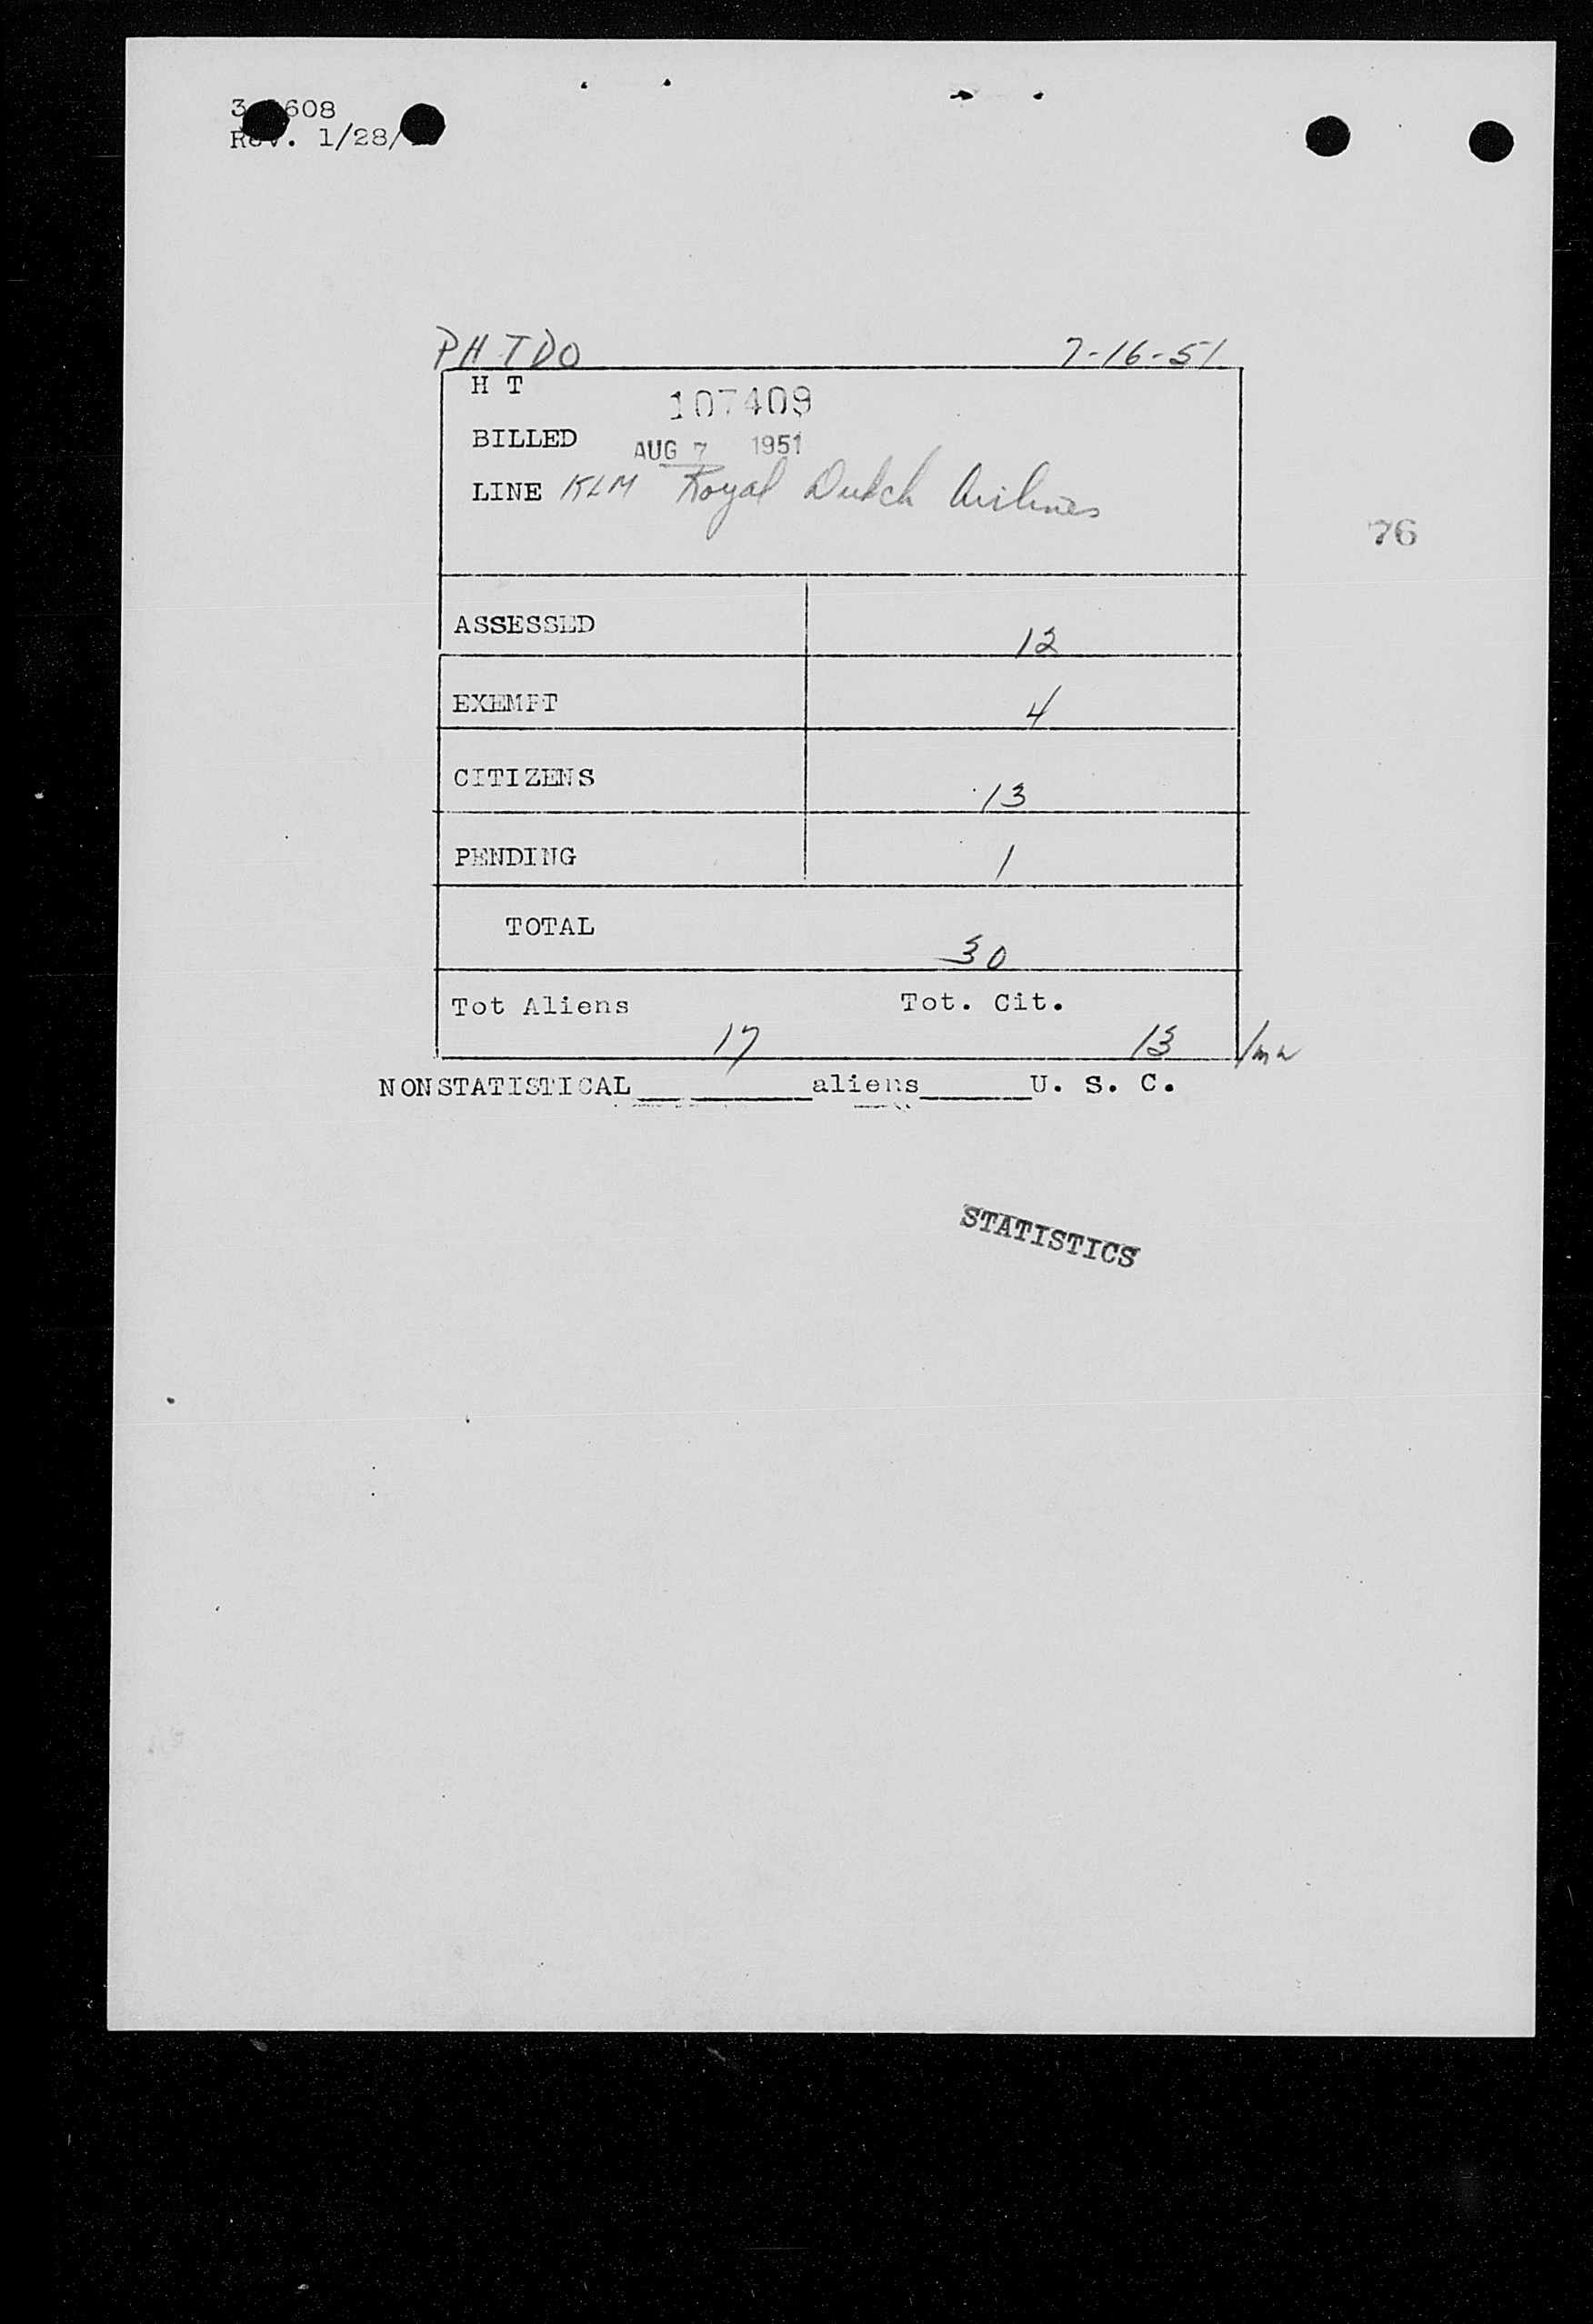 608
Rev. 1/28/
PH TDO 7-16-51
H T
107409
BILLED AUG 7 1951
LINE KLM Royal Dutch Airlines
76
ASSESSED 12
EXEMPT 4
CITIZENS 13
PENDING 1
TOTAL 30
Tot Aliens 17 Tot. Cit. 13
NONSTATISTICAL aliens U. S. C.
STATISTICS